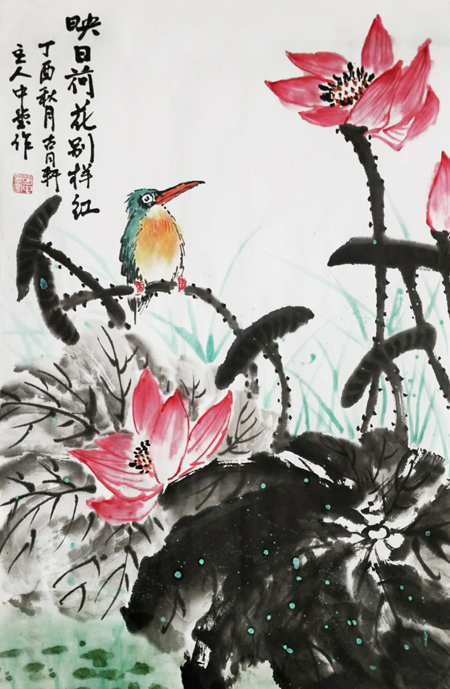 映日荷花别样红
丁酉秋月古月轩
主人中堂作